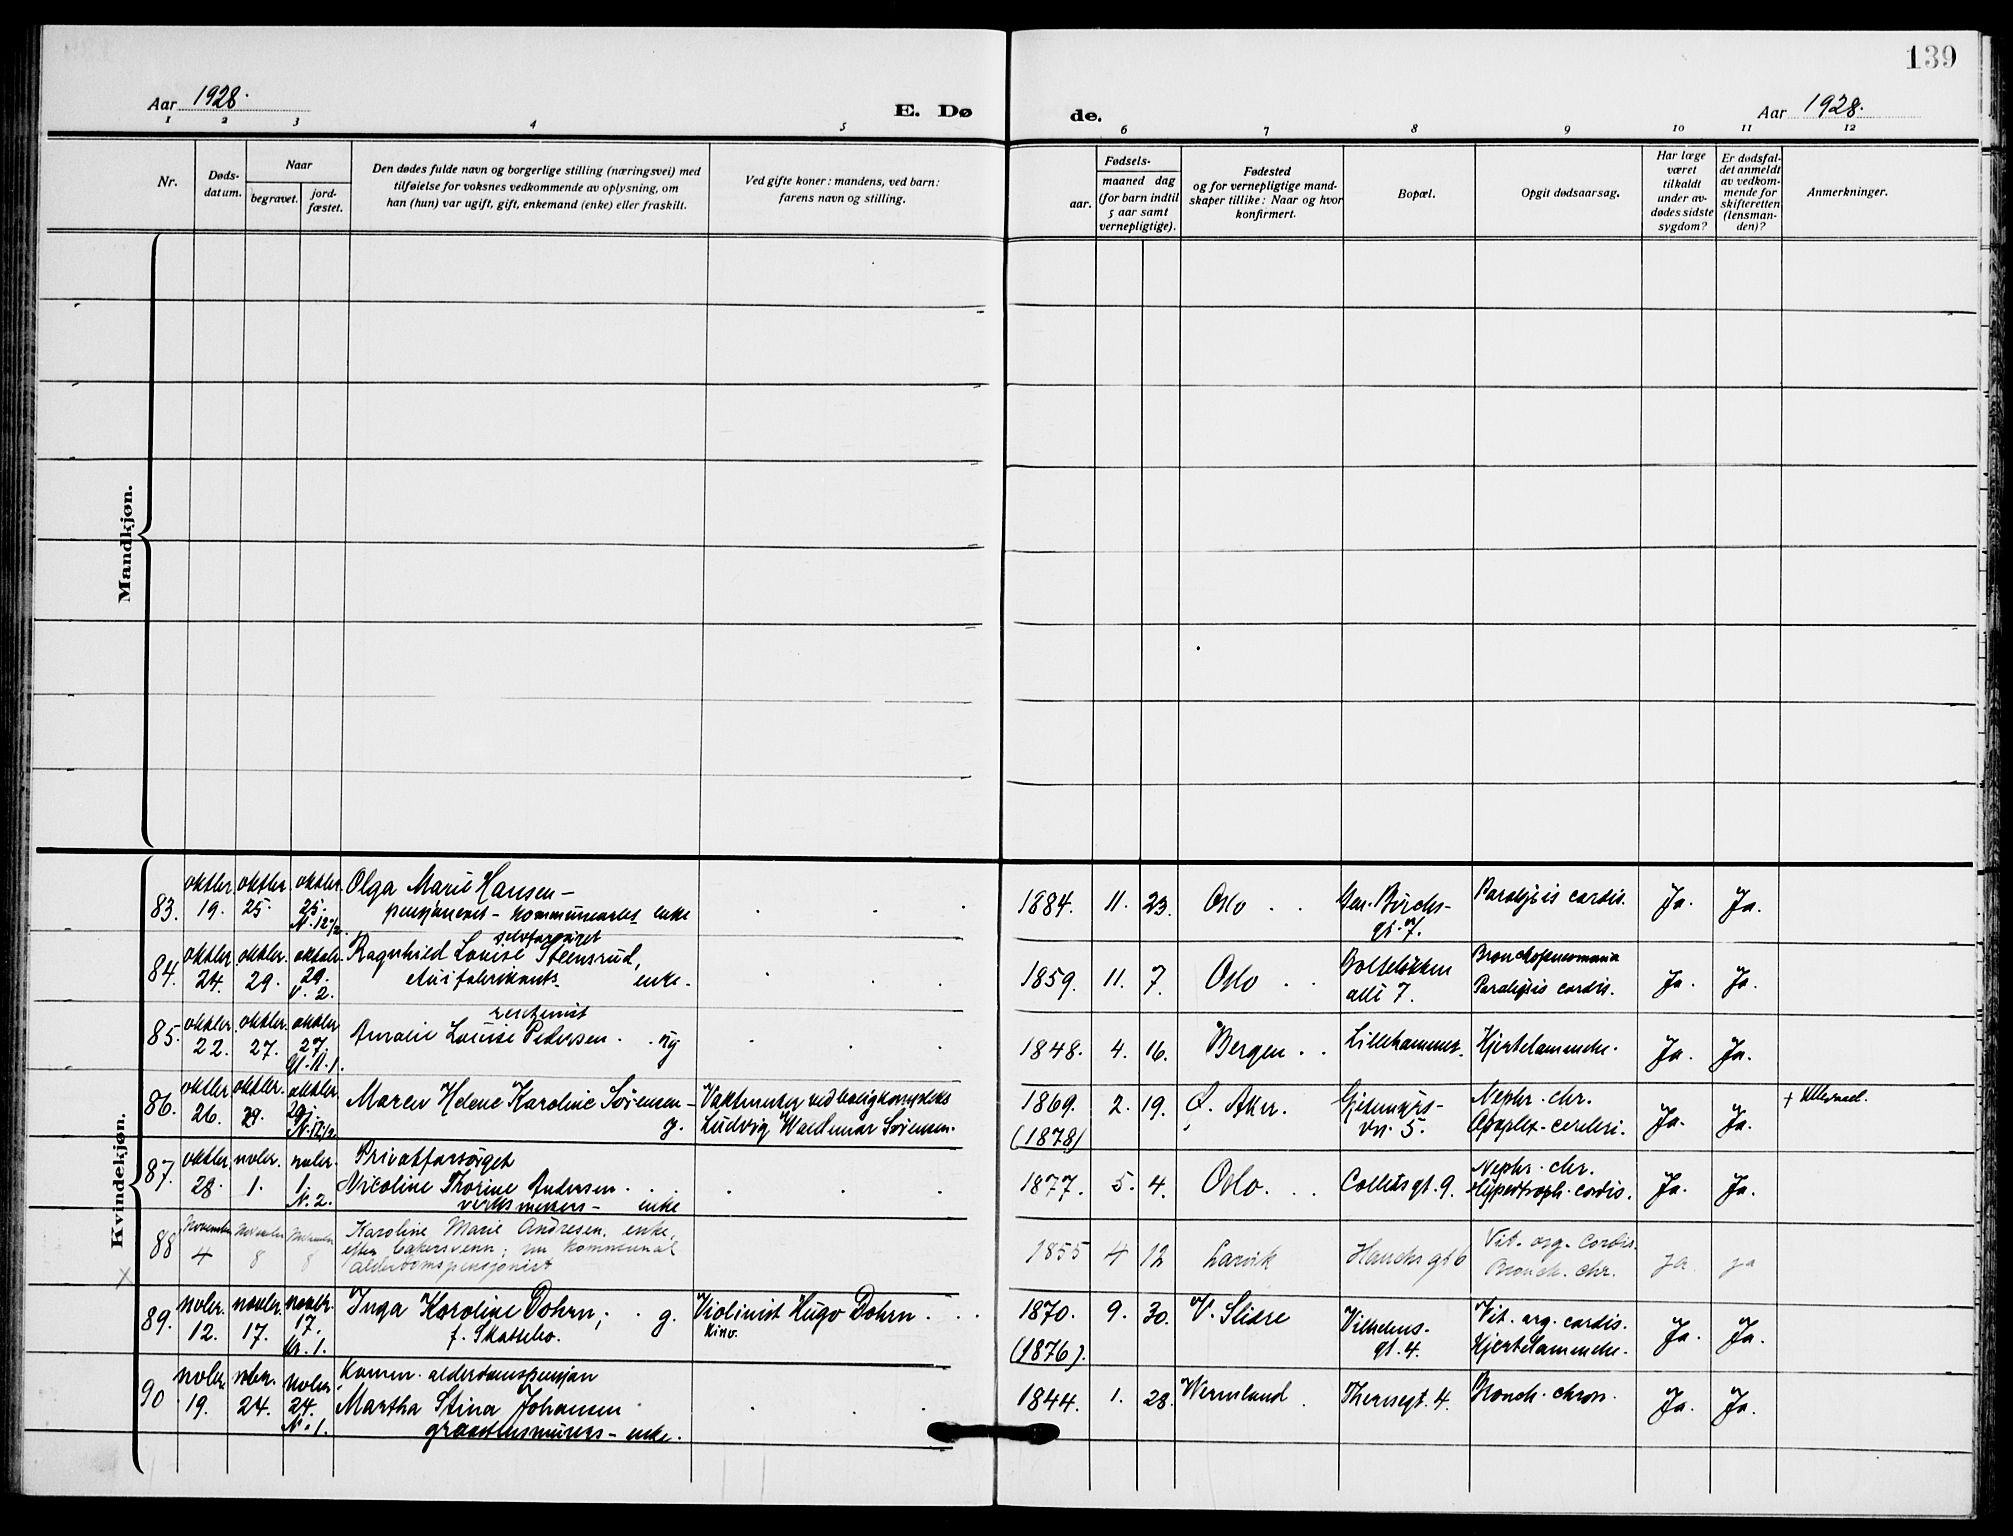 139
Aar 1928.
E. Dø
de.
Aar 1928.
1 2 3 4 5 6 7 8 9 10 11 12
Nr.
Døds-
datum.
Naar
begravet.
jord-
fæstet.
Den dødes fulde navn og borgerlige stilling (næringsvei) med
tilføielse for voksnes vedkommende av oplysning, om
han (hun) var ugift, gift, enkemand (enke) eller fraskilt.
Ved gifte koner: mandens, ved barn:
farens navn og stilling.
Fødsels-
aar.
maaned dag
(for barn indtil
5 aar samt
vernepligtige).
Fødested
og for vernepligtige mand-
skaper tillike: Naar og hvor
konfirmert.
Bopæl.
Opgit dødsaarsag.
Har læge
været
tilkaldt
under av-
dødes sidste
sygdom?
Er dødsfal-
det anmeldt
av vedkom-
mende for
skifteretten
(lensman-
den)?
Anmerkninger.
Mandkjøn.
Kvindekjøn.
83. oktbr. 19. oktbr. 25. oktbr. 25. N. 12/2.
Olga Marie Hansen –
enke
1884. 11. 23. Oslo
Gen. Birchs-
gt. 7.
Paralysis cordis.
Ja. Ja.
84. oktbr. 24. oktbr. 29. oktbr. 29. V. 2.
selvforsørget
Ragnhild Louise Steensrud,
enke.
1859. 11. 7. Oslo
Bolteløkken
alle 7.
Bronchopneumonia
Paralysis cordis.
Ja. Ja.
85. oktbr. 22. oktbr. 27. oktbr. 27.
Amalie Louise Pedersen. ug
1848. 4. 16. Bergen
Lillehammer.
Hjertelammelse.
Ja. Ja.
86. oktbr. 26. oktbr. 29. oktbr. 29. N. 12/2
Maren Helene Karoline Sørensen –
g.
Vaktmester ved boligkompleks
Ludvig Waldemar Sørensen.
1869. 2. 19. Ø. Aker.
(1878)
Gjetemyrs-
vn. 5.
Nephr. chr.
Apoplex. cerebri.
Ja. Ja.
+ Ullevaal.
87. oktbr. 28. novbr. 1. novbr. 1. N. 2.
Privatforsørget
Nicoline Thorine Andersen
verksmesters – enke
1877. 5. 4. Oslo.
Colletsgt. 9.
Nephr. chr.
Hypertroph. cordis.
Ja. Ja.
88 November 4 November 8 November 8
Karoline Marie Andresen. enke
efter bakersvenn; nu kommunal
alderdomspensjonist
1855 4 12 Larvik
Hauchs gt 6
Vit. org. cordis.
Bronch. chr.
ja ja
X
89. novbr. 12. novbr. 17. novbr. 17. Kr. 1.
Inga Karoline Dohrn; g.
f. Skattebo.
Violinist Hugo Dohrn
kino.
1870. 9. 30. V. Slidre
(1876).
Vilhelms-
gt. 4.
Vit. org. cordis.
Hjertelammelse.
Ja. Ja.
90 novbr. 19. nvbr. 24. novbr. 24. N. 1.
Komm. alderdomspensjon
Martha Stina Johansen
graastensmurers – enke.
1844. 1. 28. Wermland
Theresgt. 4.
Bronch. chron.
Ja. Ja.